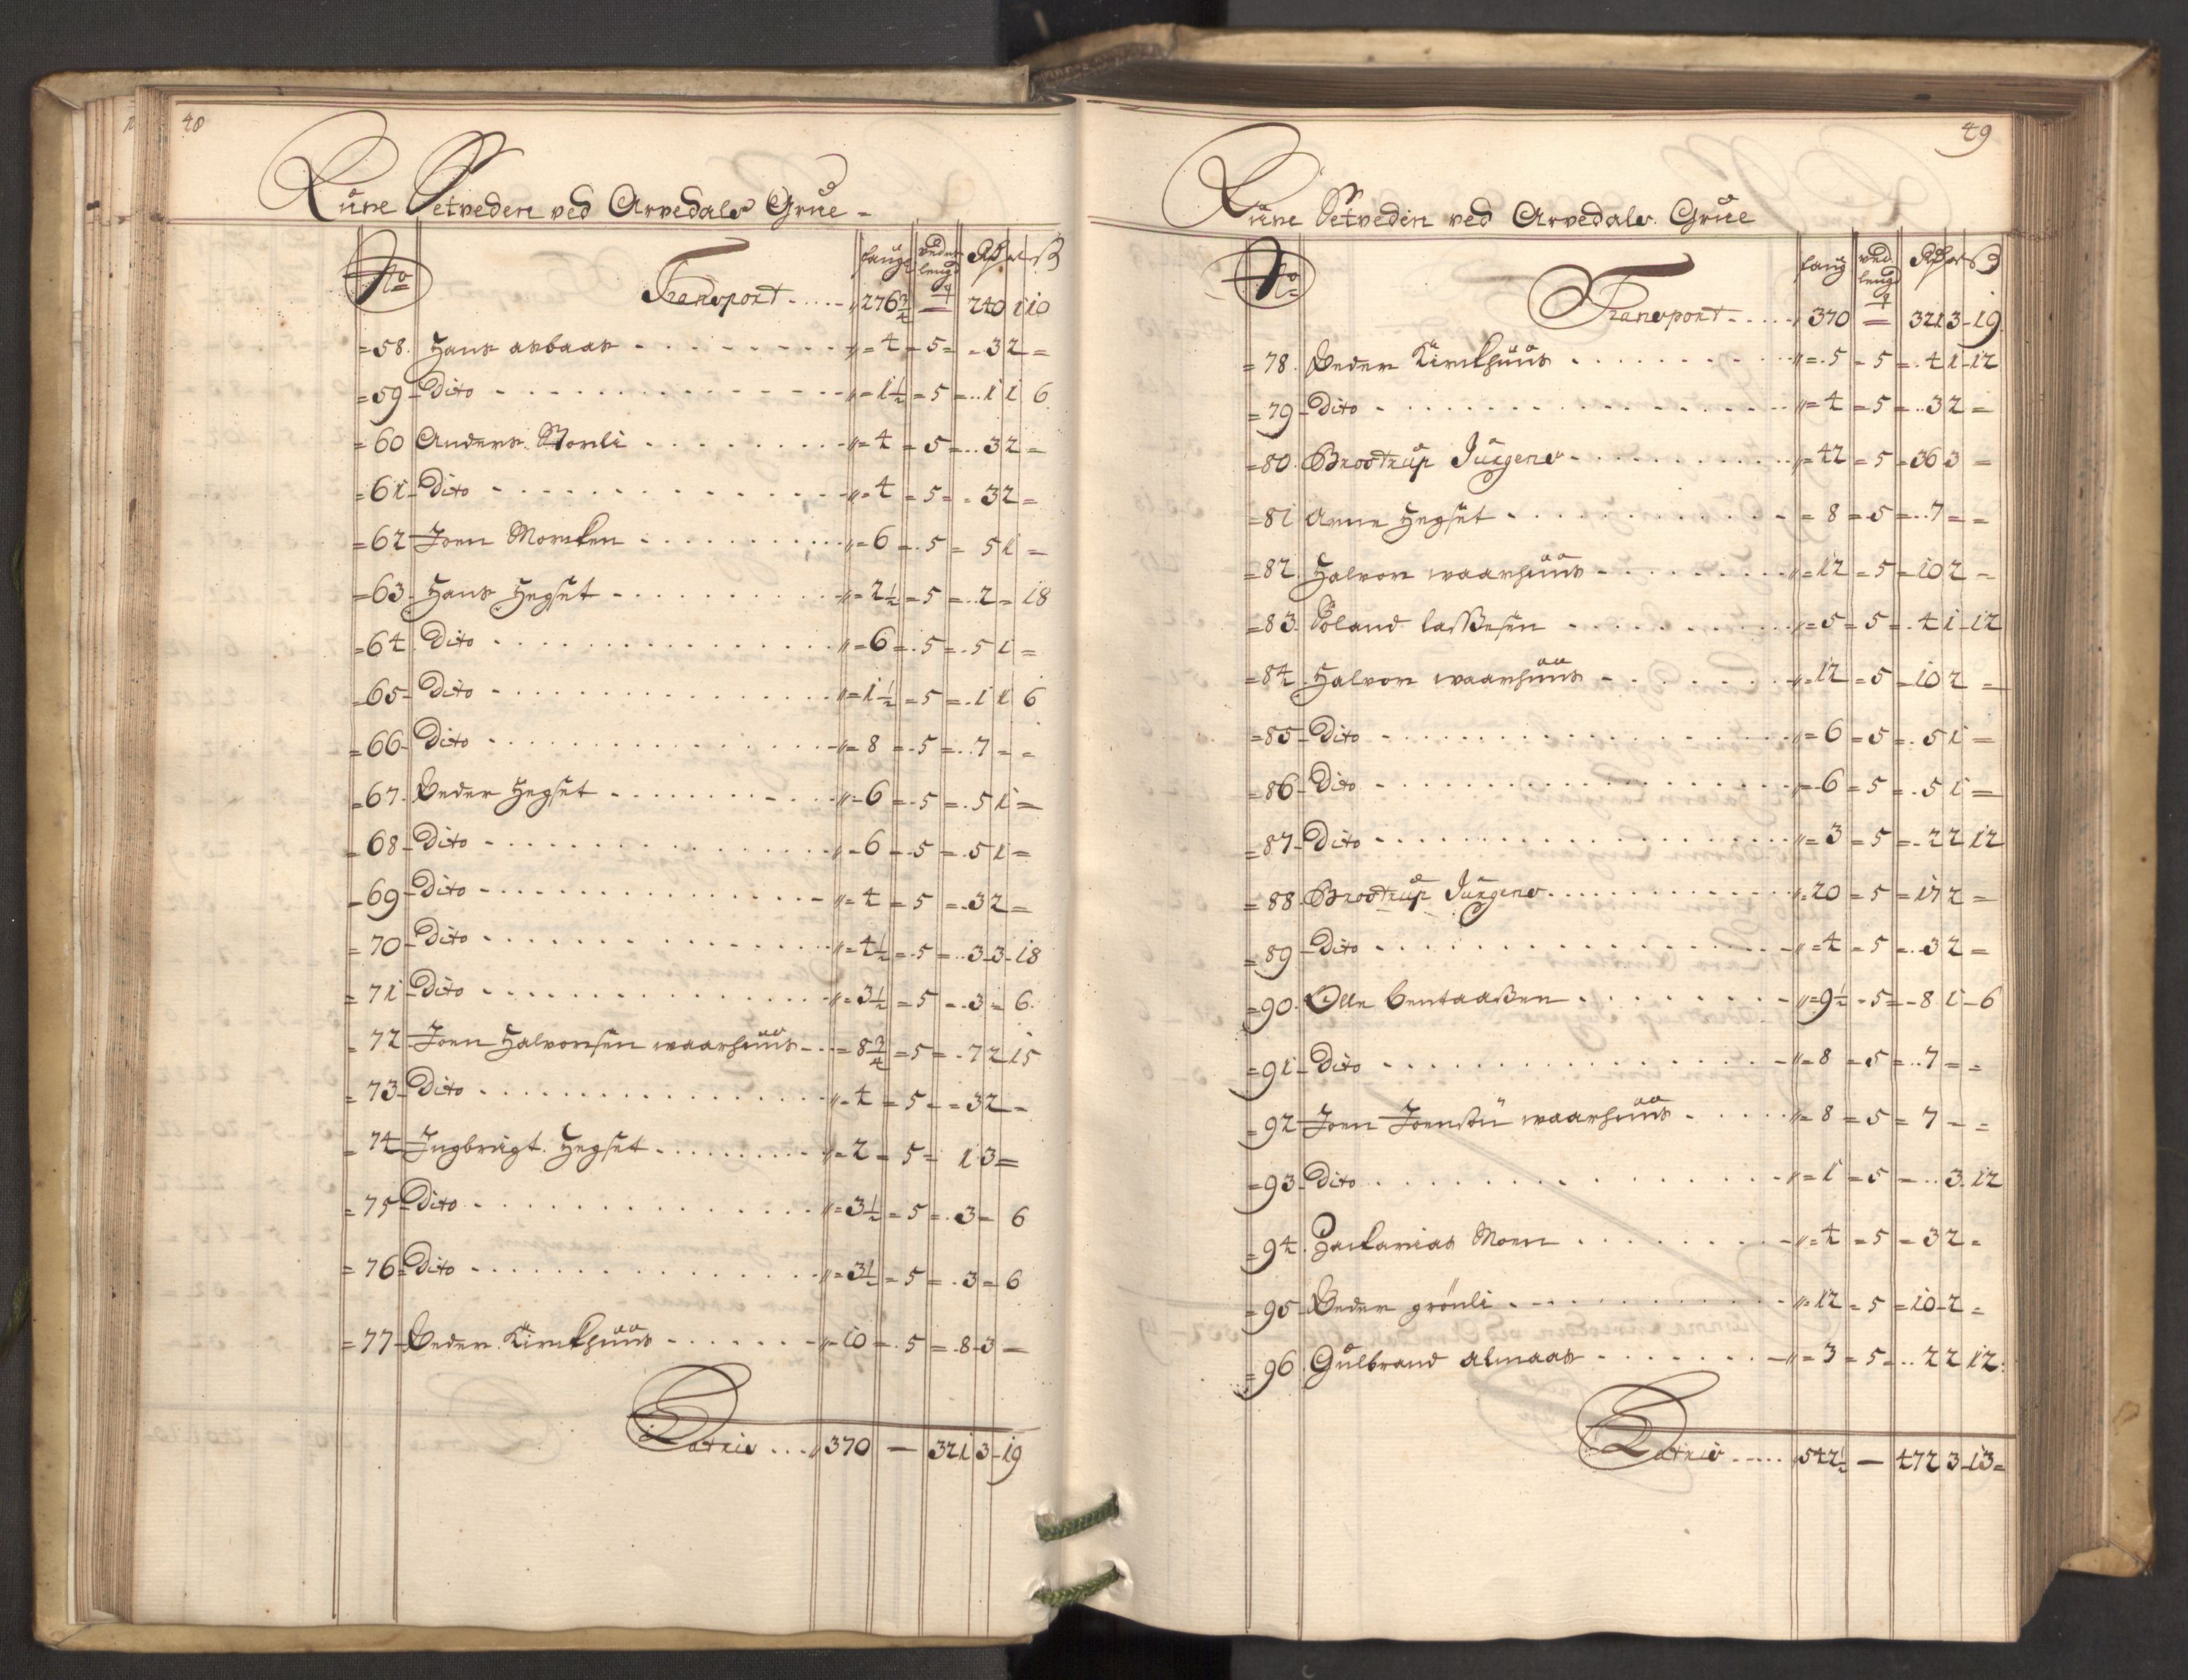 48
Lüne Setveden ved Arvedals Grue
No
faugr ved lengd Rdr ort ß
Transport - - - - 276 3/4 — 240 1 10
58. Hans asbaas - - - 4 - 5 - 3 2 -
59 Dito - - - 1 1/2 - 5 - 1 1 6
60 Anders Storli - - - 4 - 5 - 3 2 -
61 Dito - - - 4 - 5 - 3 2 -
62 Joen Morcken - - - 6 - 5 - 5 1 -
63 Hans Hegset - - - 2 1/2 - 5 - 2 - 18
64 Dito - - - 6 - 5 - 5 1 -
65 Dito - - - 1 1/2 - 5 - 1 1 6
66 Dito - - - 8 - 5 - 7 - -
67 Peder Hegset - - - 6 - 5 - 5 1 -
68 Dito - - - 6 - 5 - 5 1 -
69 Dito - - - 4 - 5 - 3 2 -
70 Dito - - - 4 1/2 - 5 - 3 3 18
71 Dito - - - 3 1/2 - 5 - 3 - 6
72 Joen Halvorsen waarhuus - - - 8 3/4 - 5 - 7 2 15
73 Dito - - - 4 - 5 - 3 2 -
74 Ingbrigt Hegset - - - 2 - 5 - 1 3 -
75 Dito - - - 3 1/2 - 5 - 3 - 6
76 Dito - - - 3 1/2 - 5 - 3 - 6
77 Peder Kirckhuus - - - 10 - 5 - 8 3 -
Latris - - - 370 — 321 3 19
49
Lüne Setveden ved Arvedals Grüe
No
faug ved lengd Rdr ort ß
Transport - - - - 370 — 321 3 19
78. Peder Kirckhuus - - - 5 - 5 - 4 1 12
79 Dito - - - 4 - 5 - 3 2 -
80. Brostrup Jürgens - - - 42 - 5 - 36 3 -
81 Arne Hegset - - - 8 - 5 - 7 - -
82 Halvor waarhuus - - - 12 - 5 - 10 2 -
83 Roland lassesen - - - 5 - 5 - 4 1 12
84 Halvor waarhuus - - - 12 - 5 - 10 2 -
85 Dito - - - 6 - 5 - 5 1 -
86 Dito - - - 6 - 5 - 5 1 -
87 Dito - - - 3 - 5 - 2 2 12
88 Brostrup Jürgens - - - 20 - 5 - 17 2 -
89 Dito - - - 4 - 5 - 3 2 -
90. Olle bentaasen - - - 9 1/2 - 5 - 8 1 6
91 Dito - - - 8 - 5 - 7 - -
92 Joen Joensen waarhuus - - - 8 - 5 - 7 - -
93 Dito - - - 1 - 5 - - 3 12
94 Zackarias Moen - - - 4 - 5 - 3 2 -
95 Peder grönli - - - 12 - 5 - 10 2 -
96 Gulbrand almaas - - - 3 - 5 - 2 2 12
Latris - - - 542 1/2 — 472 3 13